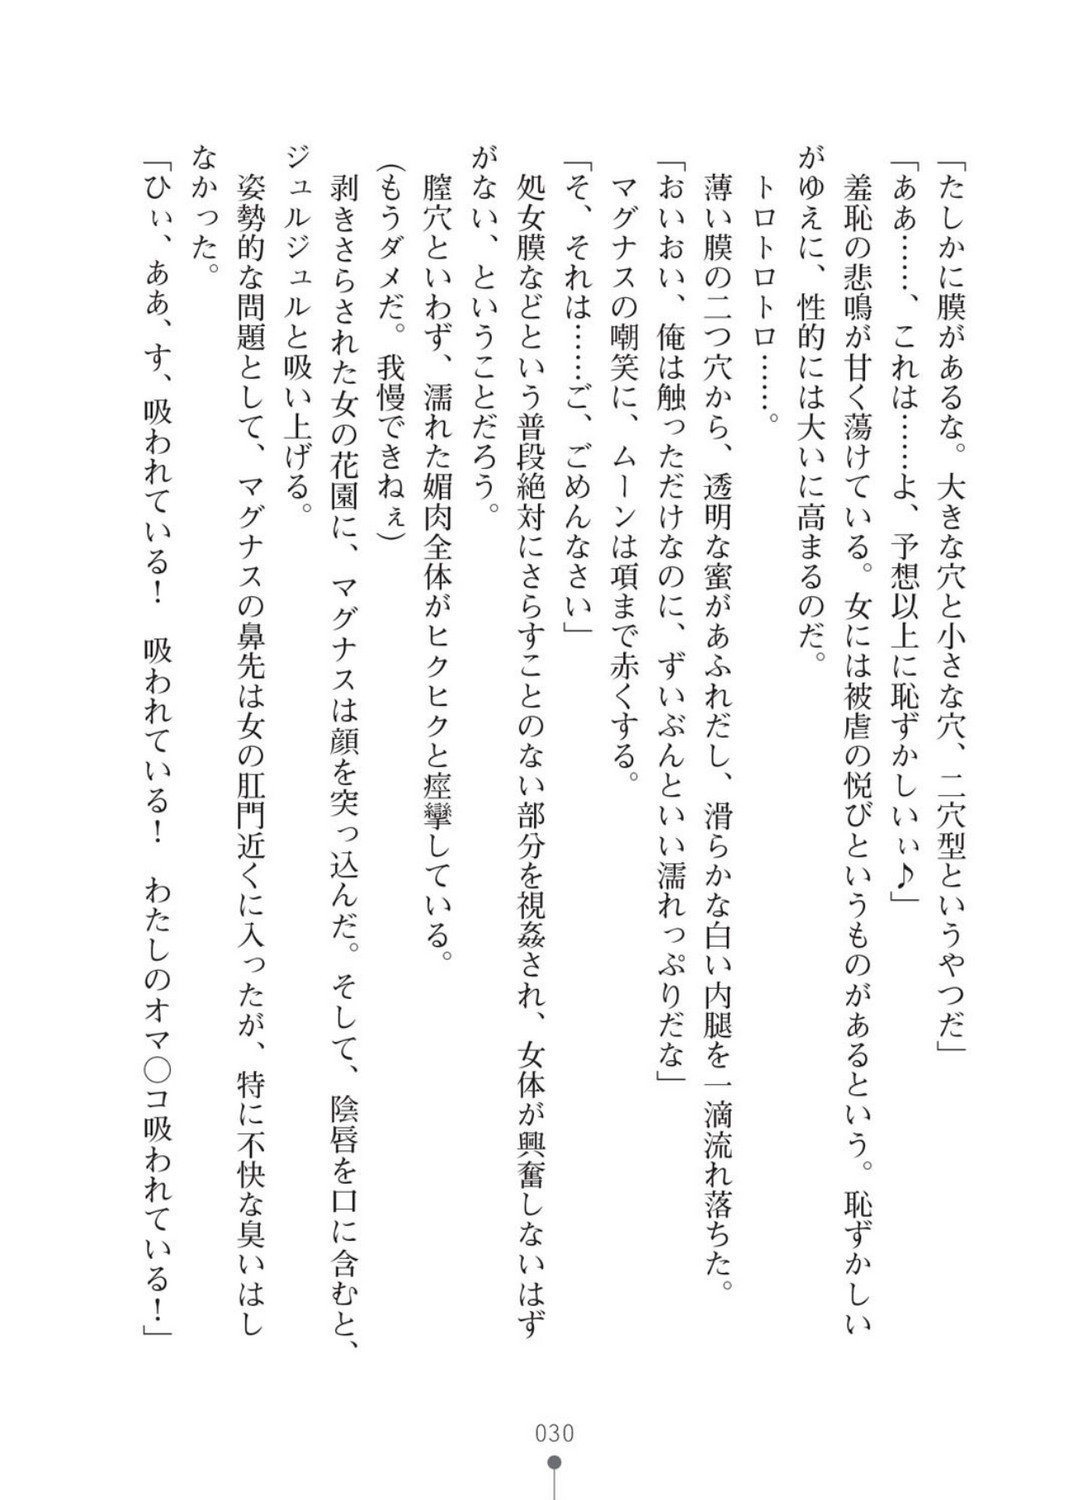 「たしかに膜があるな。大きな穴と小さな穴、二穴型というやつだ」
「ああ……、これは……よ、予想以上に恥ずかしいぃ♪」
　羞恥の悲鳴が甘く蕩けている。女には被虐の悦びというものがあるという。恥ずかしい
がゆえに、性的には大いに高まるのだ。
　トロトロトロ……。
　薄い膜の二つ穴から、透明な蜜があふれだし、滑らかな白い内腿を一滴流れ落ちた。
「おいおい、俺は触っただけなのに、ずいぶんといい濡れっぷりだな」
　マグナスの嘲笑に、ムーンは項まで赤くする。
「そ、それは……ご、ごめんなさい」
　処女膜などという普段絶対にさらすことのない部分を視姦され、女体が興奮しないはず
がない、ということだろう。
　膣穴といわず、濡れた媚肉全体がヒクヒクと痙攣している。
(もうダメだ。我慢できねぇ)
　剥きさらされた女の花園に、マグナスは顔を突っ込んだ。そして、陰唇を口に含むと、
ジュルジュルと吸い上げる。
　姿勢的な問題として、マグナスの鼻先は女の肛門近くに入ったが、特に不快な臭いはし
なかった。
「ひぃ、ああ、す、吸われている！　吸われている！　わたしのオマ〇コ吸われている！」
030